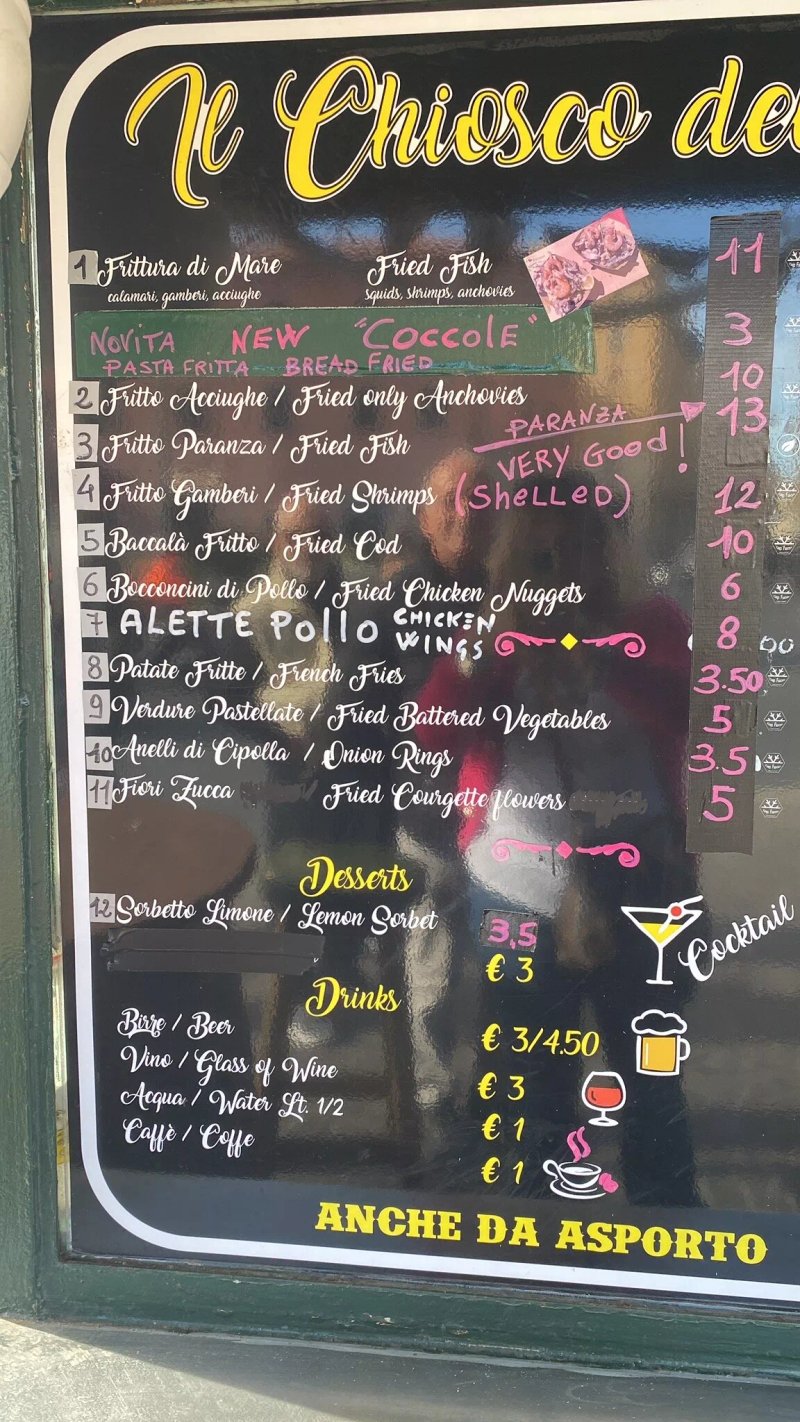 Il Chiosco del
1 Frittura di Mare Fried Fish 11
calamari, gamberi, acciughe squids, shrimps, anchovies
NOVITA NEW "COCCOLE" 3
PASTA FRITTA BREAD FRIED
2 Fritto Acciughe / Fried only Anchovies 10
PARANZA 13
3 Fritto Paranza / Fried Fish VERY Good!
4 Fritto Gamberi / Fried Shrimps (SHeLLeD) 12
5 Baccalà Fritto / Fried Cod 10
6 Bocconcini di Pollo / Fried Chicken Nuggets 6
7 ALETTE POLLO CHICKEN WINGS 8
8 Patate Fritte / French Fries 3.50
9 Verdure Pastellate / Fried Battered Vegetables 5
10 Anelli di Cipolla / Onion Rings 3.5
11 Fiori Zucca Fried Courgette flowers 5
Desserts
12 Sorbetto Limone / Lemon Sorbet 3,5
€ 3
Cocktail
Drinks
Birre / Beer € 3/4.50
Vino / Glass of Wine € 3
Acqua / Water Lt. 1/2 € 1
Caffè / Coffe € 1
ANCHE DA ASPORTO